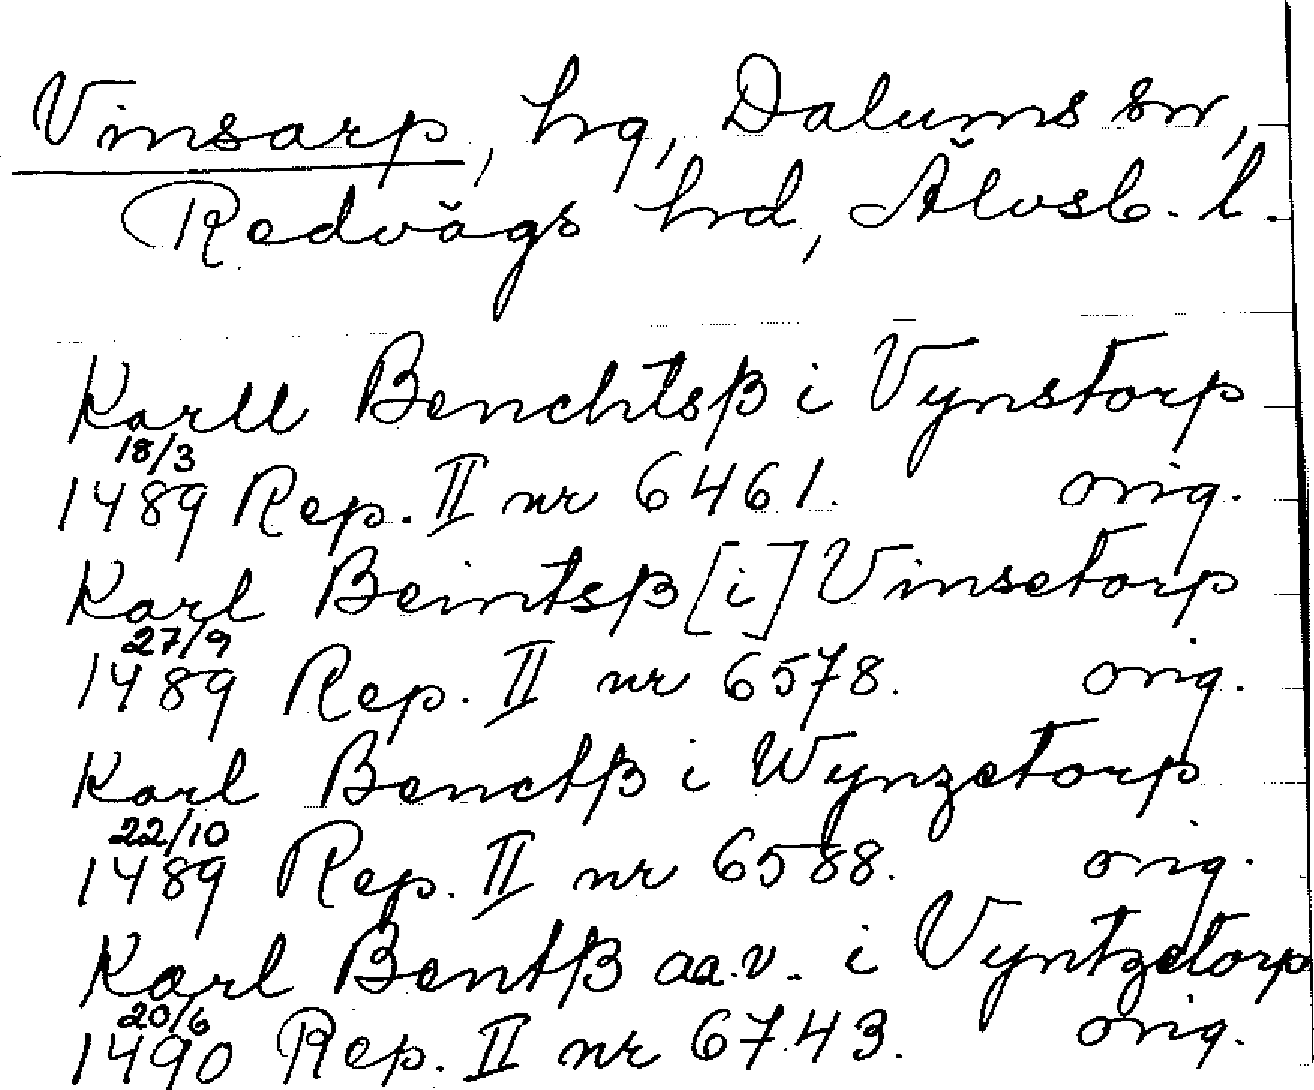 Vinsarp, hrg, Dalums sn,
Redvägs hrd, Älvsb. l.
Karll Benchtsß i Vynstorp
18/3
1489 Rep. II nr 6461. orig.
Karl Beintsß [i] Vinsetorp
27/9
1489 Rep. II nr 6578. orig.
Karl Benctß i Wynzetorp
22/10
1489 Rep. II nr 6588. orig.
Karl Bentß aa.v. i Vyntzetorp
20/6
1490 Rep. II nr 6743. orig.